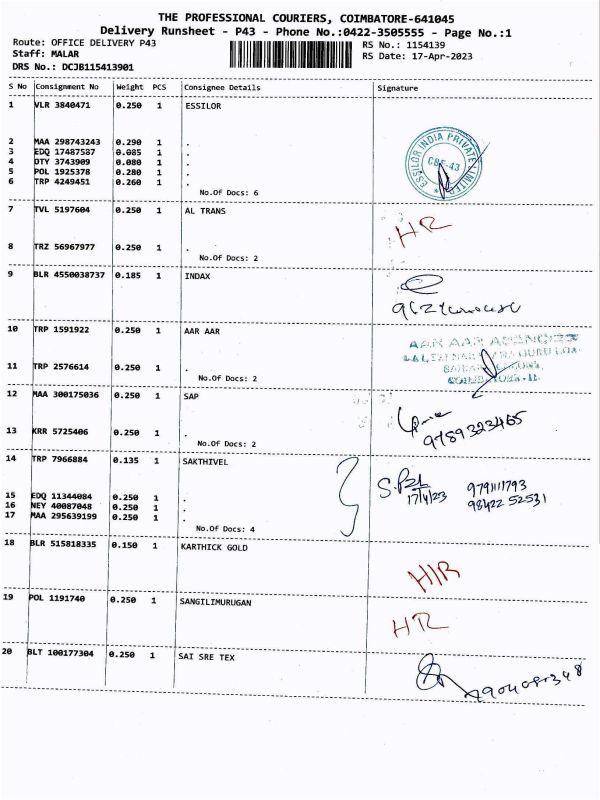 THE PROFESSIONAL COURIERS, COIMBATORE-641045
Delivery Runsheet - P43 - Phone No.:0422-3505555 - Page No.:1
Route: OFFICE DELIVERY P43
Staff: MALAR
DRS No.: DCJB115413901
RS No.: 1154139
RS Date: 17-Apr-2023
S No Consignment No Weight PCS Consignee Details Signature
1 VLR 3840471 0.250 1 ESSILOR
2 MAA 298743243 0.290 1 .
3 EDQ 17487587 0.085 1 .
4 DTY 3743909 0.080 1 .
5 POL 1925378 0.280 1 .
6 TRP 4249451 0.260 1 .
No.Of Docs: 6
ESSILOR INDIA PRIVATE LIMITED
CBE-43
7 TVL 5197604 0.250 1 AL TRANS
HR
8 TRZ 56967977 0.250 1 .
No.Of Docs: 2
9 BLR 4550038737 0.185 1 INDAX
10 TRP 1591922 0.250 1 AAR AAR
AAR AAR AGENCIES
11 TRP 2576614 0.250 1 .
No.Of Docs: 2
12 MAA 300175036 0.250 1 SAP
9789323465
13 KRR 5725406 0.250 1 .
No.Of Docs: 2
14 TRP 7966884 0.135 1 SAKTHIVEL
17/4/23
9791111793
98422 52531
15 EDQ 11344084 0.250 1 .
16 NEY 40087048 0.250 1 .
17 MAA 295639199 0.250 1 .
No.Of Docs: 4
18 BLR 515818335 0.150 1 KARTHICK GOLD
H/R
19 POL 1191740 0.250 1 SANGILIMURUGAN
HR
20 BLT 100177304 0.250 1 SAI SRE TEX